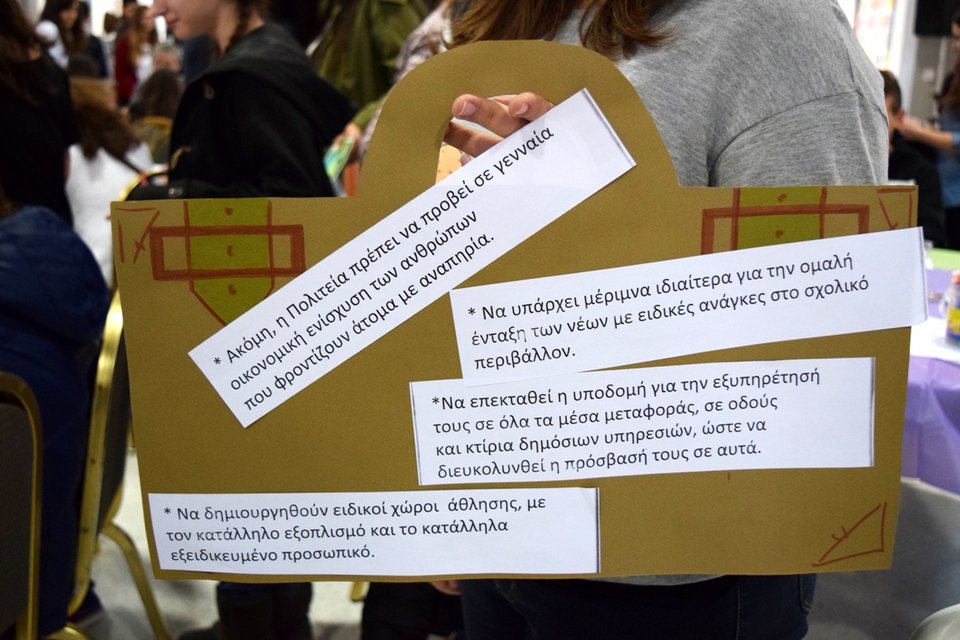 * Ακόμη, η Πολιτεία πρέπει να προβεί σε γενναία
οικονομική ενίσχυση των ανθρώπων
που φροντίζουν άτομα με αναπηρία.
* Να υπάρχει μέριμνα ιδιαίτερα για την ομαλή
ένταξη των νέων με ειδικές ανάγκες στο σχολικό
περιβάλλον.
*Να επεκταθεί η υποδομή για την εξυπηρέτησή
τους σε όλα τα μέσα μεταφοράς, σε οδούς
και κτίρια δημόσιων υπηρεσιών, ώστε να
διευκολυνθεί η πρόσβασή τους σε αυτά.
* Να δημιουργηθούν ειδικοί χώροι άθλησης, με
τον κατάλληλο εξοπλισμό και το κατάλληλα
εξειδικευμένο προσωπικό.